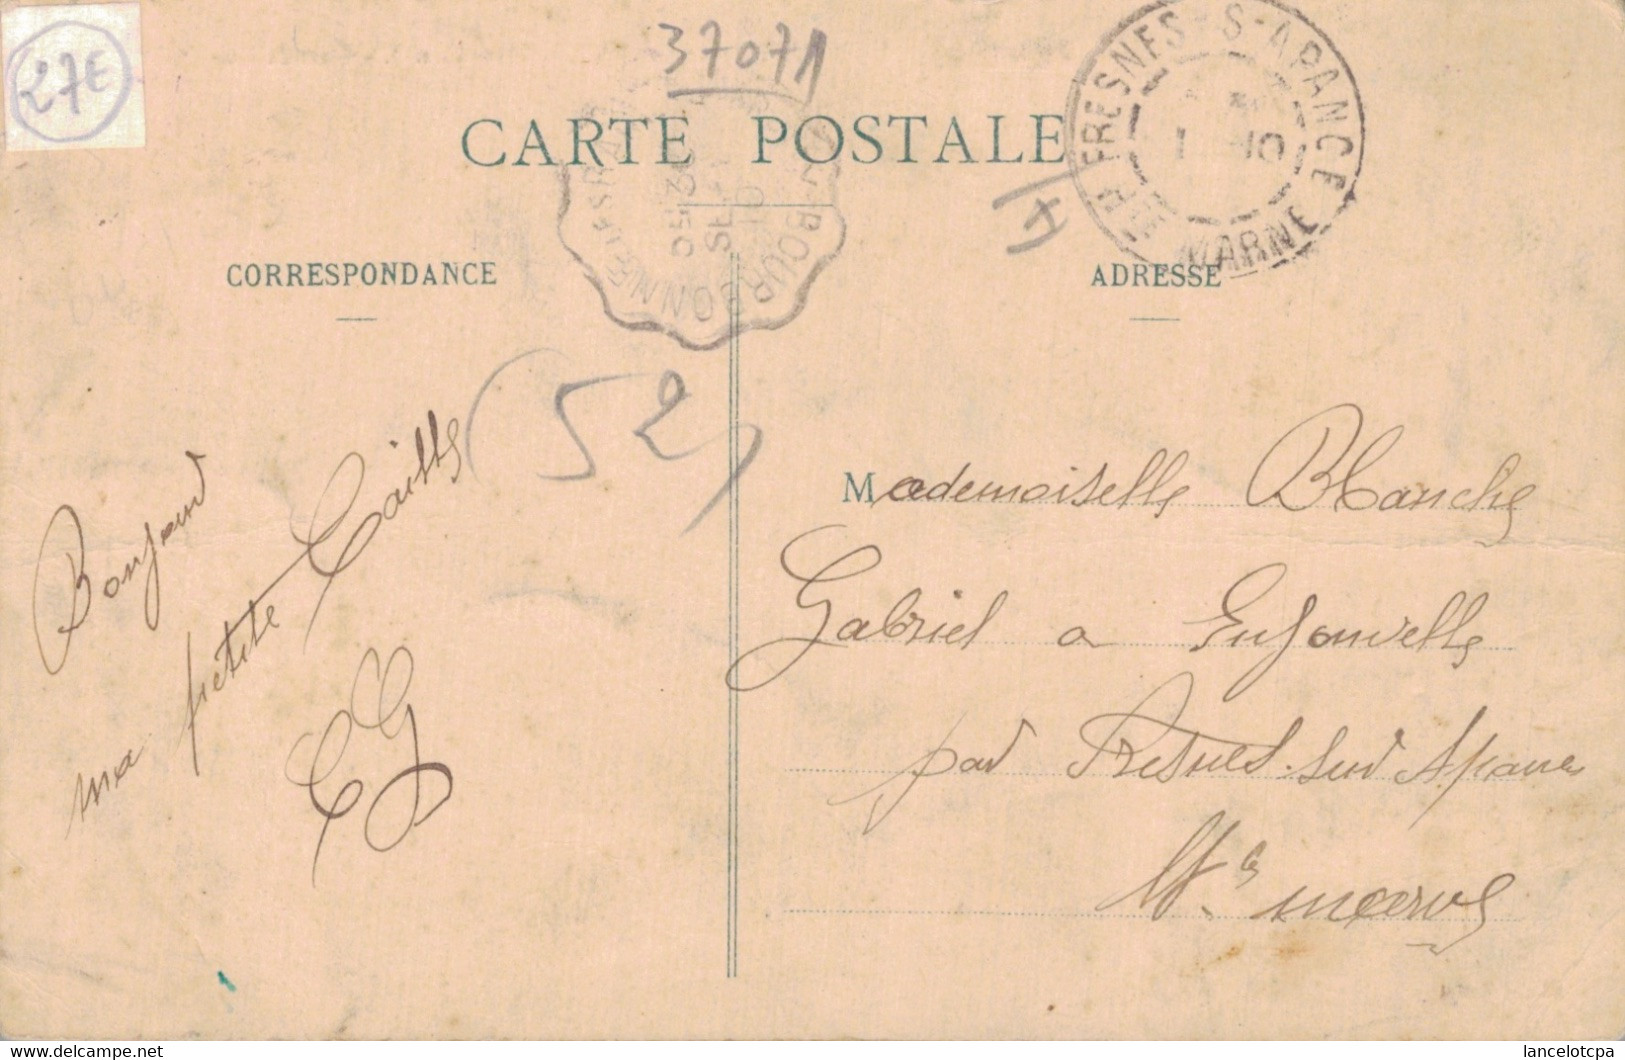 27€
37071
CARTE POSTALE
FRESNES-S-APANCE
HTE MARNE
1 10
BOURBONNE
30
SEPT
10
CORRESPONDANCE
ADRESSE
(52)
Bonjour
ma petite Caille
EG
Mademoiselle Blanche
Gabriel a Enfonvelle
par Fresnes-sur Apance
Hte marne
lancelotcpa
www.delcampe.net